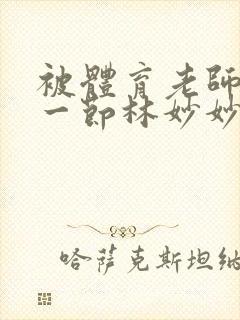 被體育老師
一節林妙妙
哈薩克斯坦納